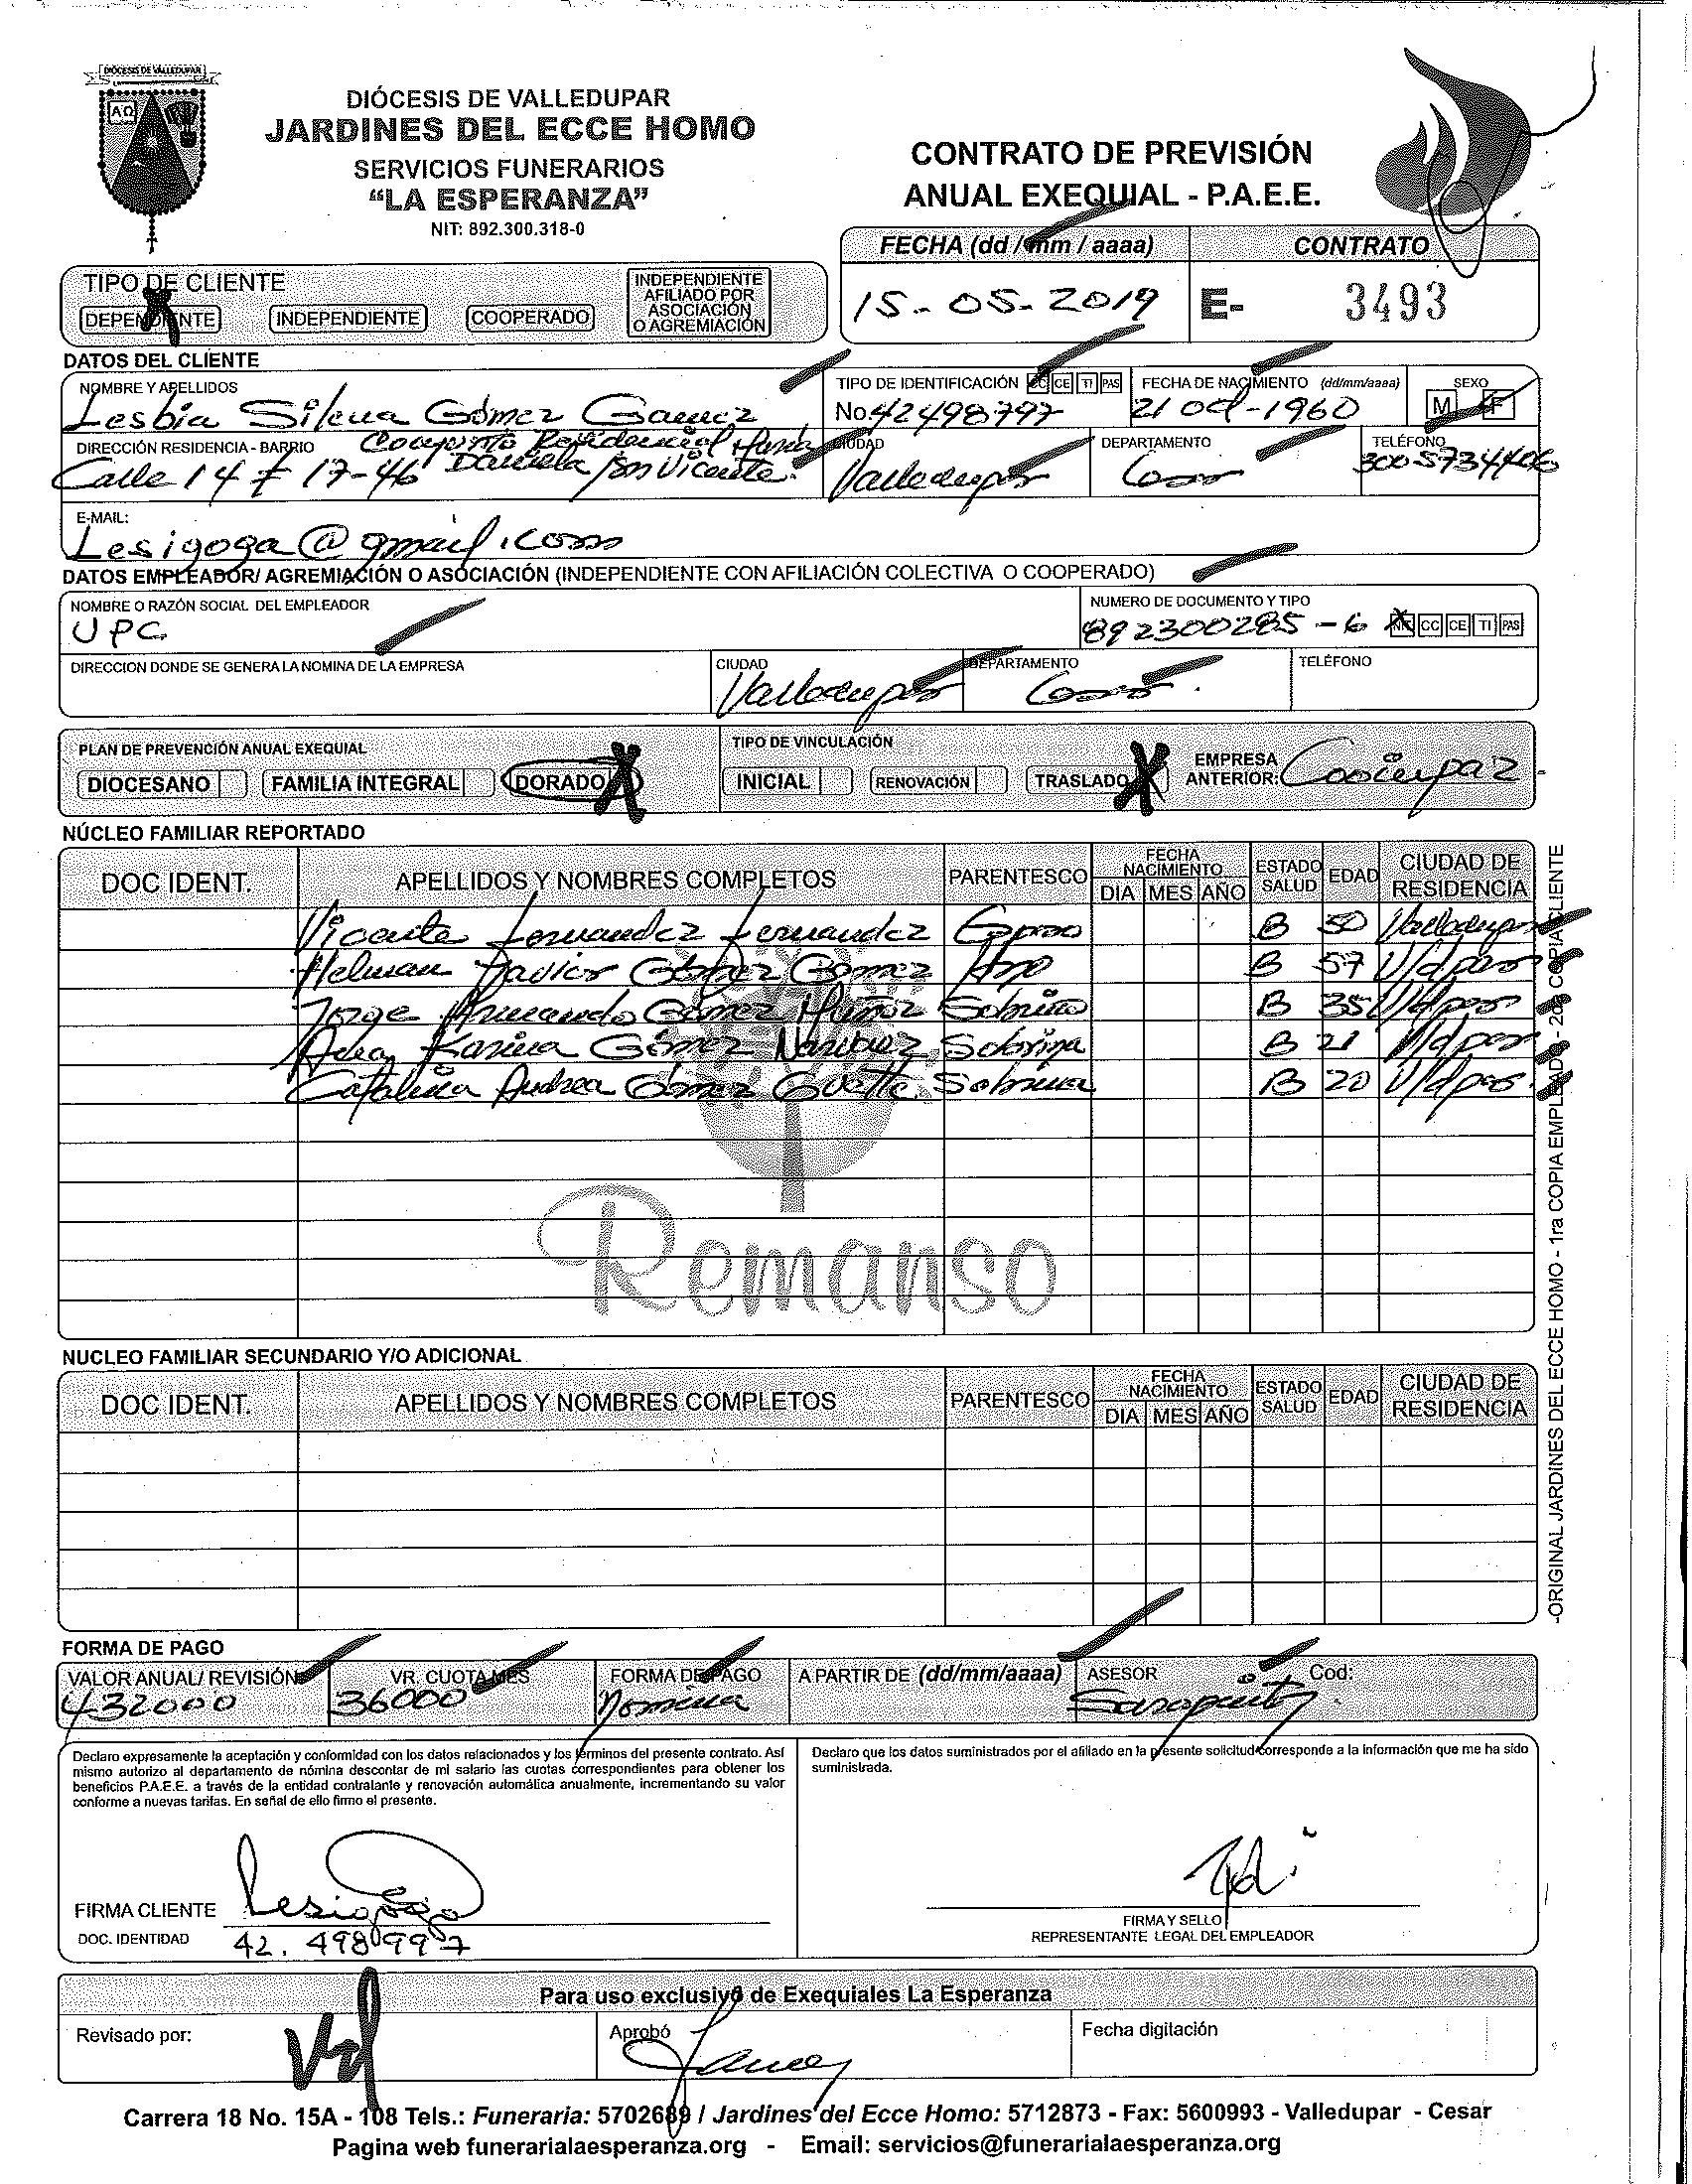 DIÓCESIS DE VALLEDUPAR
DIÓCESIS DE VALLEDUPAR
JARDINES DEL ECCE HOMO
SERVICIOS FUNERARIOS
"LA ESPERANZA"
NIT: 892.300.318-0
CONTRATO DE PREVISIÓN
ANUAL EXEQUIAL - P.A.E.E.
FECHA (dd / mm / aaaa) CONTRATO
15-05-2019 E- 3493
TIPO DE CLIENTE
DEPENDIENTE INDEPENDIENTE COOPERADO INDEPENDIENTE AFILIADO POR ASOCIACIÓN O AGREMIACIÓN
DATOS DEL CLIENTE
NOMBRE Y APELLIDOS TIPO DE IDENTIFICACIÓN CC CE TI PAS FECHA DE NACIMIENTO (dd/mm/aaaa) SEXO
Lesbia Silena Gómez Gamez No. 42498797 21 oct-1960 M F
DIRECCIÓN RESIDENCIA - BARRIO Conjunto Residencial María CIUDAD DEPARTAMENTO TELÉFONO
Calle 14 # 17-46 Daniela San Vicente. Valledupar Cesar
E-MAIL:
Lesigoga@gmail.com
DATOS EMPLEADOR/ AGREMIACIÓN O ASOCIACIÓN (INDEPENDIENTE CON AFILIACIÓN COLECTIVA O COOPERADO)
NOMBRE O RAZÓN SOCIAL DEL EMPLEADOR NUMERO DE DOCUMENTO Y TIPO
UPC 892300285-6 NIT CC CE TI PAS
DIRECCION DONDE SE GENERA LA NOMINA DE LA EMPRESA CIUDAD DEPARTAMENTO TELÉFONO
Valledupar Cesar.
PLAN DE PREVENCIÓN ANUAL EXEQUIAL TIPO DE VINCULACIÓN
DIOCESANO FAMILIA INTEGRAL DORADO X INICIAL RENOVACIÓN TRASLADO X EMPRESA ANTERIOR:
NÚCLEO FAMILIAR REPORTADO
DOC IDENT. APELLIDOS Y NOMBRES COMPLETOS PARENTESCO FECHA NACIMIENTO DIA MES AÑO ESTADO SALUD EDAD CIUDAD DE RESIDENCIA
Vicente Fernandez Fernandez Esposo B 50 Valledupar
Helman Javier Gómez Gomez Hno B 57 V/dpar
Jorge Armando Gomez Muñoz Sobrino B 35 V/dpar
Karina Gómez Sobrina B 21 V/dpar
Catalina Andrea Gómez Sobrina B 20 V/dpar
Remanso
NUCLEO FAMILIAR SECUNDARIO Y/O ADICIONAL
DOC IDENT. APELLIDOS Y NOMBRES COMPLETOS PARENTESCO FECHA NACIMIENTO DIA MES AÑO ESTADO SALUD EDAD CIUDAD DE RESIDENCIA
-ORIGINAL JARDINES DEL ECCE HOMO - 1ra COPIA EMPLEADO - 2da COPIA CLIENTE
FORMA DE PAGO
VALOR ANUAL/ REVISIÓN VR. CUOTA MES FORMA DE PAGO A PARTIR DE (dd/mm/aaaa) ASESOR Cod:
432000 36000 Nomina
Declaro expresamente la aceptación y conformidad con los datos relacionados y los términos del presente contrato. Así
mismo autorizo al departamento de nómina descontar de mi salario las cuotas correspondientes para obtener los
beneficios P.A.E.E. a través de la entidad contratante y renovación automática anualmente, incrementando su valor
conforme a nuevas tarifas. En señal de ello firmo el presente.
Declaro que los datos suministrados por el afiliado en la presente solicitud corresponde a la información que me ha sido
suministrada.
FIRMA CLIENTE Lesigoga
DOC. IDENTIDAD 42. 498 997
FIRMA Y SELLO
REPRESENTANTE LEGAL DEL EMPLEADOR
Para uso exclusivo de Exequiales La Esperanza
Revisado por: Aprobó Fecha digitación
Carrera 18 No. 15A - 108 Tels.: Funeraria: 5702689 / Jardines del Ecce Homo: 5712873 - Fax: 5600993 - Valledupar - Cesar
Pagina web funerarialaesperanza.org - Email: servicios@funerarialaesperanza.org